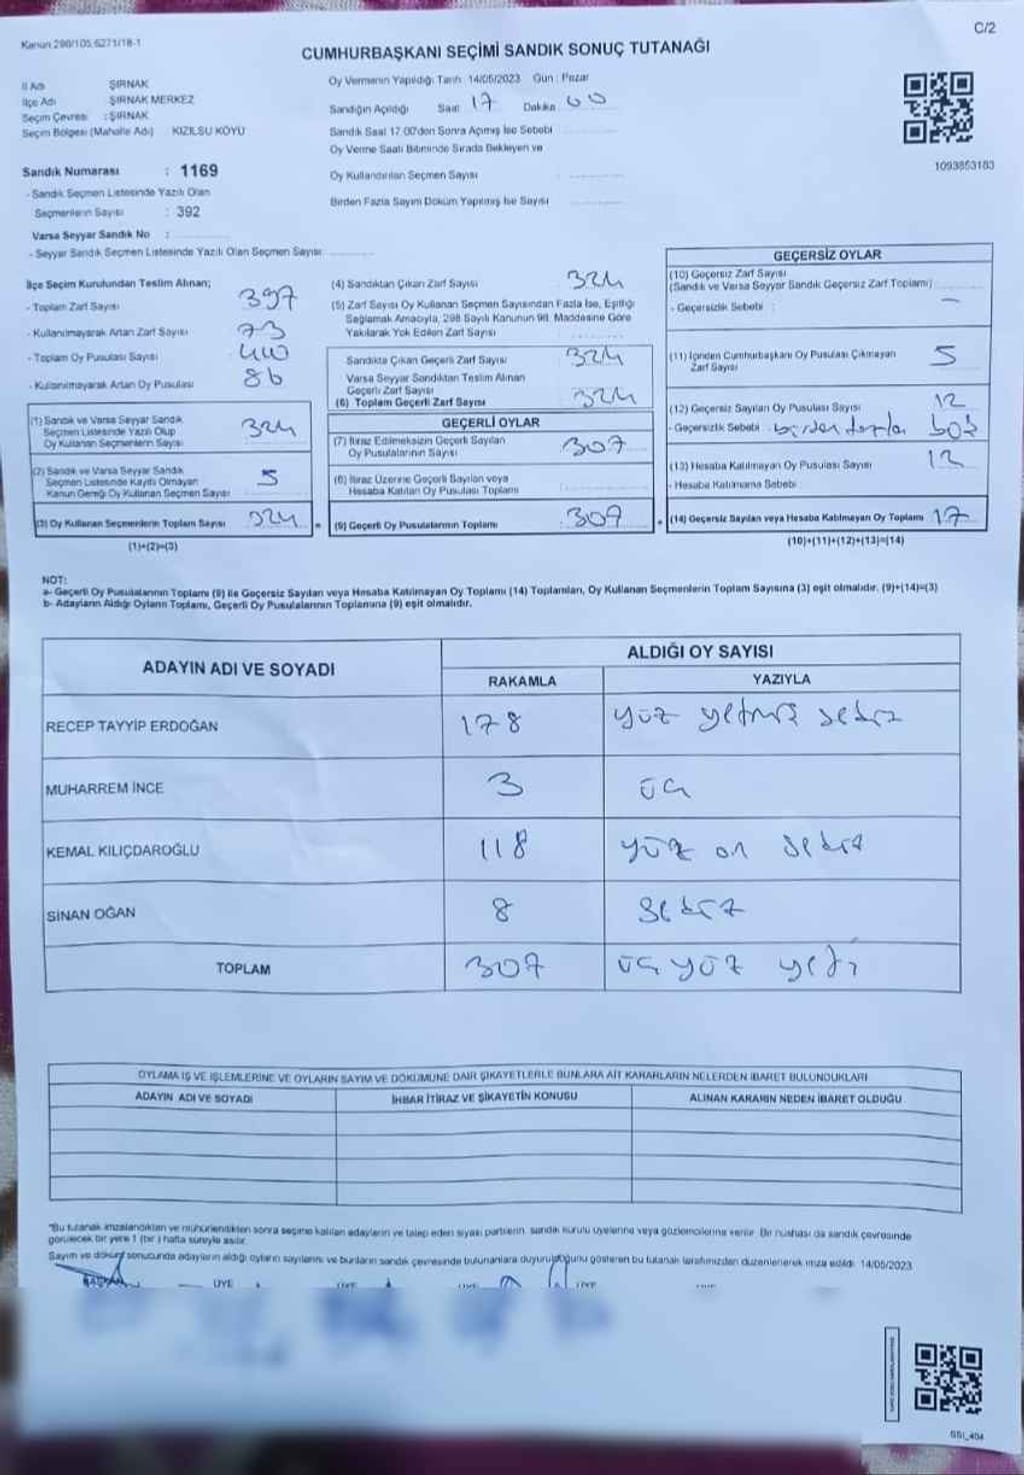 Kanun 298/105,6271/18-1
C/2
CUMHURBAŞKANI SEÇİMİ SANDIK SONUÇ TUTANAĞI
İl Adı ŞIRNAK
İlçe Adı ŞIRNAK MERKEZ
Seçim Çevresi : ŞIRNAK
Seçim Bölgesi (Mahalle Adı) KIZILSU KÖYÜ
Oy Vermenin Yapıldığı Tarih: 14/05/2023 Gün : Pazar
Sandığın Açıldığı Saat 17 Dakika 00
Sandık Saat 17.00'den Sonra Açılmış İse Sebebi
Oy Verme Saati Bitiminde Sırada Bekleyen ve
Oy Kullandırılan Seçmen Sayısı
Birden Fazla Sayım Döküm Yapılmış İse Sayısı
1093853183
Sandık Numarası : 1169
- Sandık Seçmen Listesinde Yazılı Olan
Seçmenlerin Sayısı : 392
Varsa Seyyar Sandık No :
- Seyyar Sandık Seçmen Listesinde Yazılı Olan Seçmen Sayısı
İlçe Seçim Kurulundan Teslim Alınan;
- Toplam Zarf Sayısı 397
- Kullanılmayarak Artan Zarf Sayısı 73
- Toplam Oy Pusulası Sayısı 410
- Kullanılmayarak Artan Oy Pusulası 86
(1) Sandık ve Varsa Seyyar Sandık
Seçmen Listesinde Yazılı Olup
Oy Kullanan Seçmenlerin Sayısı 324
(2) Sandık ve Varsa Seyyar Sandık
Seçmen Listesinde Kayıtlı Olmayan
Kanun Gereği Oy Kullanan Seçmen Sayısı 5
(3) Oy Kullanan Seçmenlerin Toplam Sayısı 324
(1)+(2)=(3)
(4) Sandıktan Çıkan Zarf Sayısı 324
(5) Zarf Sayısı Oy Kullanan Seçmen Sayısından Fazla İse, Eşitliği
Sağlamak Amacıyla, 298 Sayılı Kanunun 98. Maddesine Göre
Yakılarak Yok Edilen Zarf Sayısı
Sandıkta Çıkan Geçerli Zarf Sayısı 324
Varsa Seyyar Sandıktan Teslim Alınan
Geçerli Zarf Sayısı
(6) Toplam Geçerli Zarf Sayısı 324
GEÇERLİ OYLAR
(7) İtiraz Edilmeksizin Geçerli Sayılan
Oy Pusulalarının Sayısı 307
(8) İtiraz Üzerine Geçerli Sayılan veya
Hesaba Katılan Oy Pusulası Toplamı
(9) Geçerli Oy Pusulalarının Toplamı 307
GEÇERSİZ OYLAR
(10) Geçersiz Zarf Sayısı
(Sandık ve Varsa Seyyar Sandık Geçersiz Zarf Toplamı)
- Geçersizlik Sebebi : —
(11) İçinden Cumhurbaşkanı Oy Pusulası Çıkmayan
Zarf Sayısı 5
(12) Geçersiz Sayılan Oy Pusulası Sayısı 12
- Geçersizlik Sebebi birden fazla
(13) Hesaba Katılmayan Oy Pusulası Sayısı 12
- Hesaba Katılmama Sebebi
(14) Geçersiz Sayılan veya Hesaba Katılmayan Oy Toplamı 17
(10)+(11)+(12)+(13)=(14)
NOT:
a- Geçerli Oy Pusulalarının Toplamı (9) ile Geçersiz Sayılan veya Hesaba Katılmayan Oy Toplamı (14) Toplamları, Oy Kullanan Seçmenlerin Toplam Sayısına (3) eşit olmalıdır. (9)+(14)=(3)
b- Adayların Aldığı Oyların Toplamı, Geçerli Oy Pusulalarının Toplamına (9) eşit olmalıdır.
ADAYIN ADI VE SOYADI
ALDIĞI OY SAYISI
RAKAMLA YAZIYLA
RECEP TAYYİP ERDOĞAN 178 yüz yetmiş sekiz
MUHARREM İNCE 3 üç
KEMAL KILIÇDAROĞLU 118 yüz on sekiz
SİNAN OĞAN 8 sekiz
TOPLAM 307 üç yüz yedi
OYLAMA İŞ VE İŞLEMLERİNE VE OYLARIN SAYIM VE DÖKÜMÜNE DAİR ŞİKAYETLERLE BUNLARA AİT KARARLARIN NELERDEN İBARET BULUNDUKLARI
ADAYIN ADI VE SOYADI İHBAR İTİRAZ VE ŞİKAYETİN KONUSU ALINAN KARARIN NEDEN İBARET OLDUĞU
*Bu tutanak imzalandıktan ve mühürlendikten sonra seçime katılan adayların ve talep eden siyasi partilerin sandık kurulu üyelerine veya gözlemcilerine verilir. Bir nüshası da sandık çevresinde
görülecek bir yere 1 (bir) hafta süreyle asılır.
Sayım ve döküm sonucunda adayların aldığı oyların sayılarını ve bunların sandık çevresinde bulunanlara duyurulduğunu gösteren bu tutanak tarafımızdan düzenlenerek imza edildi. 14/05/2023
BAŞKAN ÜYE ÜYE ÜYE ÜYE
SSI_404